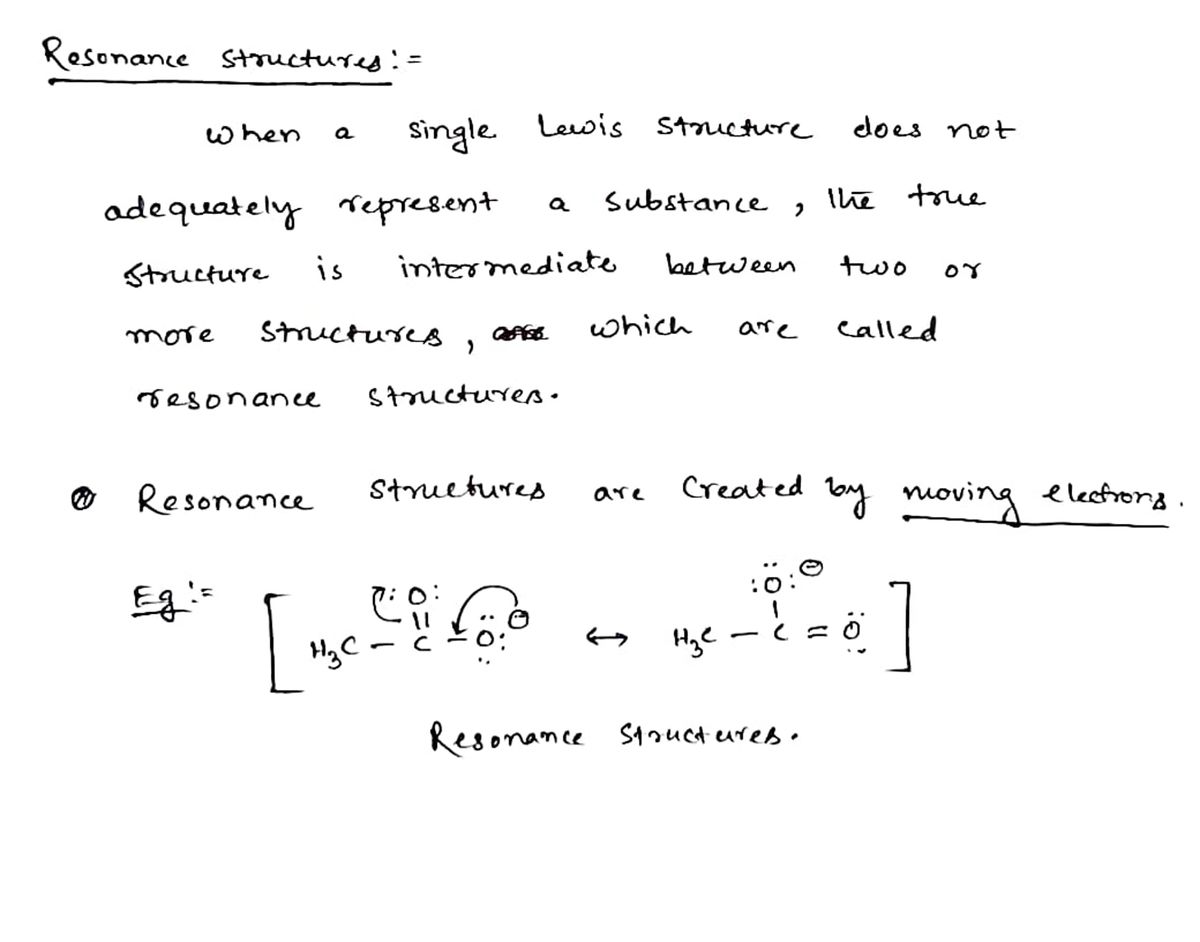 Resonance structures :=
When a single Lewis structure does not
adequately represent a substance, the true
structure is intermediate between two or
more structures, which are called
resonance structures.
Resonance structures are created by moving electrons.
Eg :=
[ H₃C – C – Ö: ⊖ ↔ H₃C – C = Ö ]
:O: :Ö: ⊖
Resonance structures.